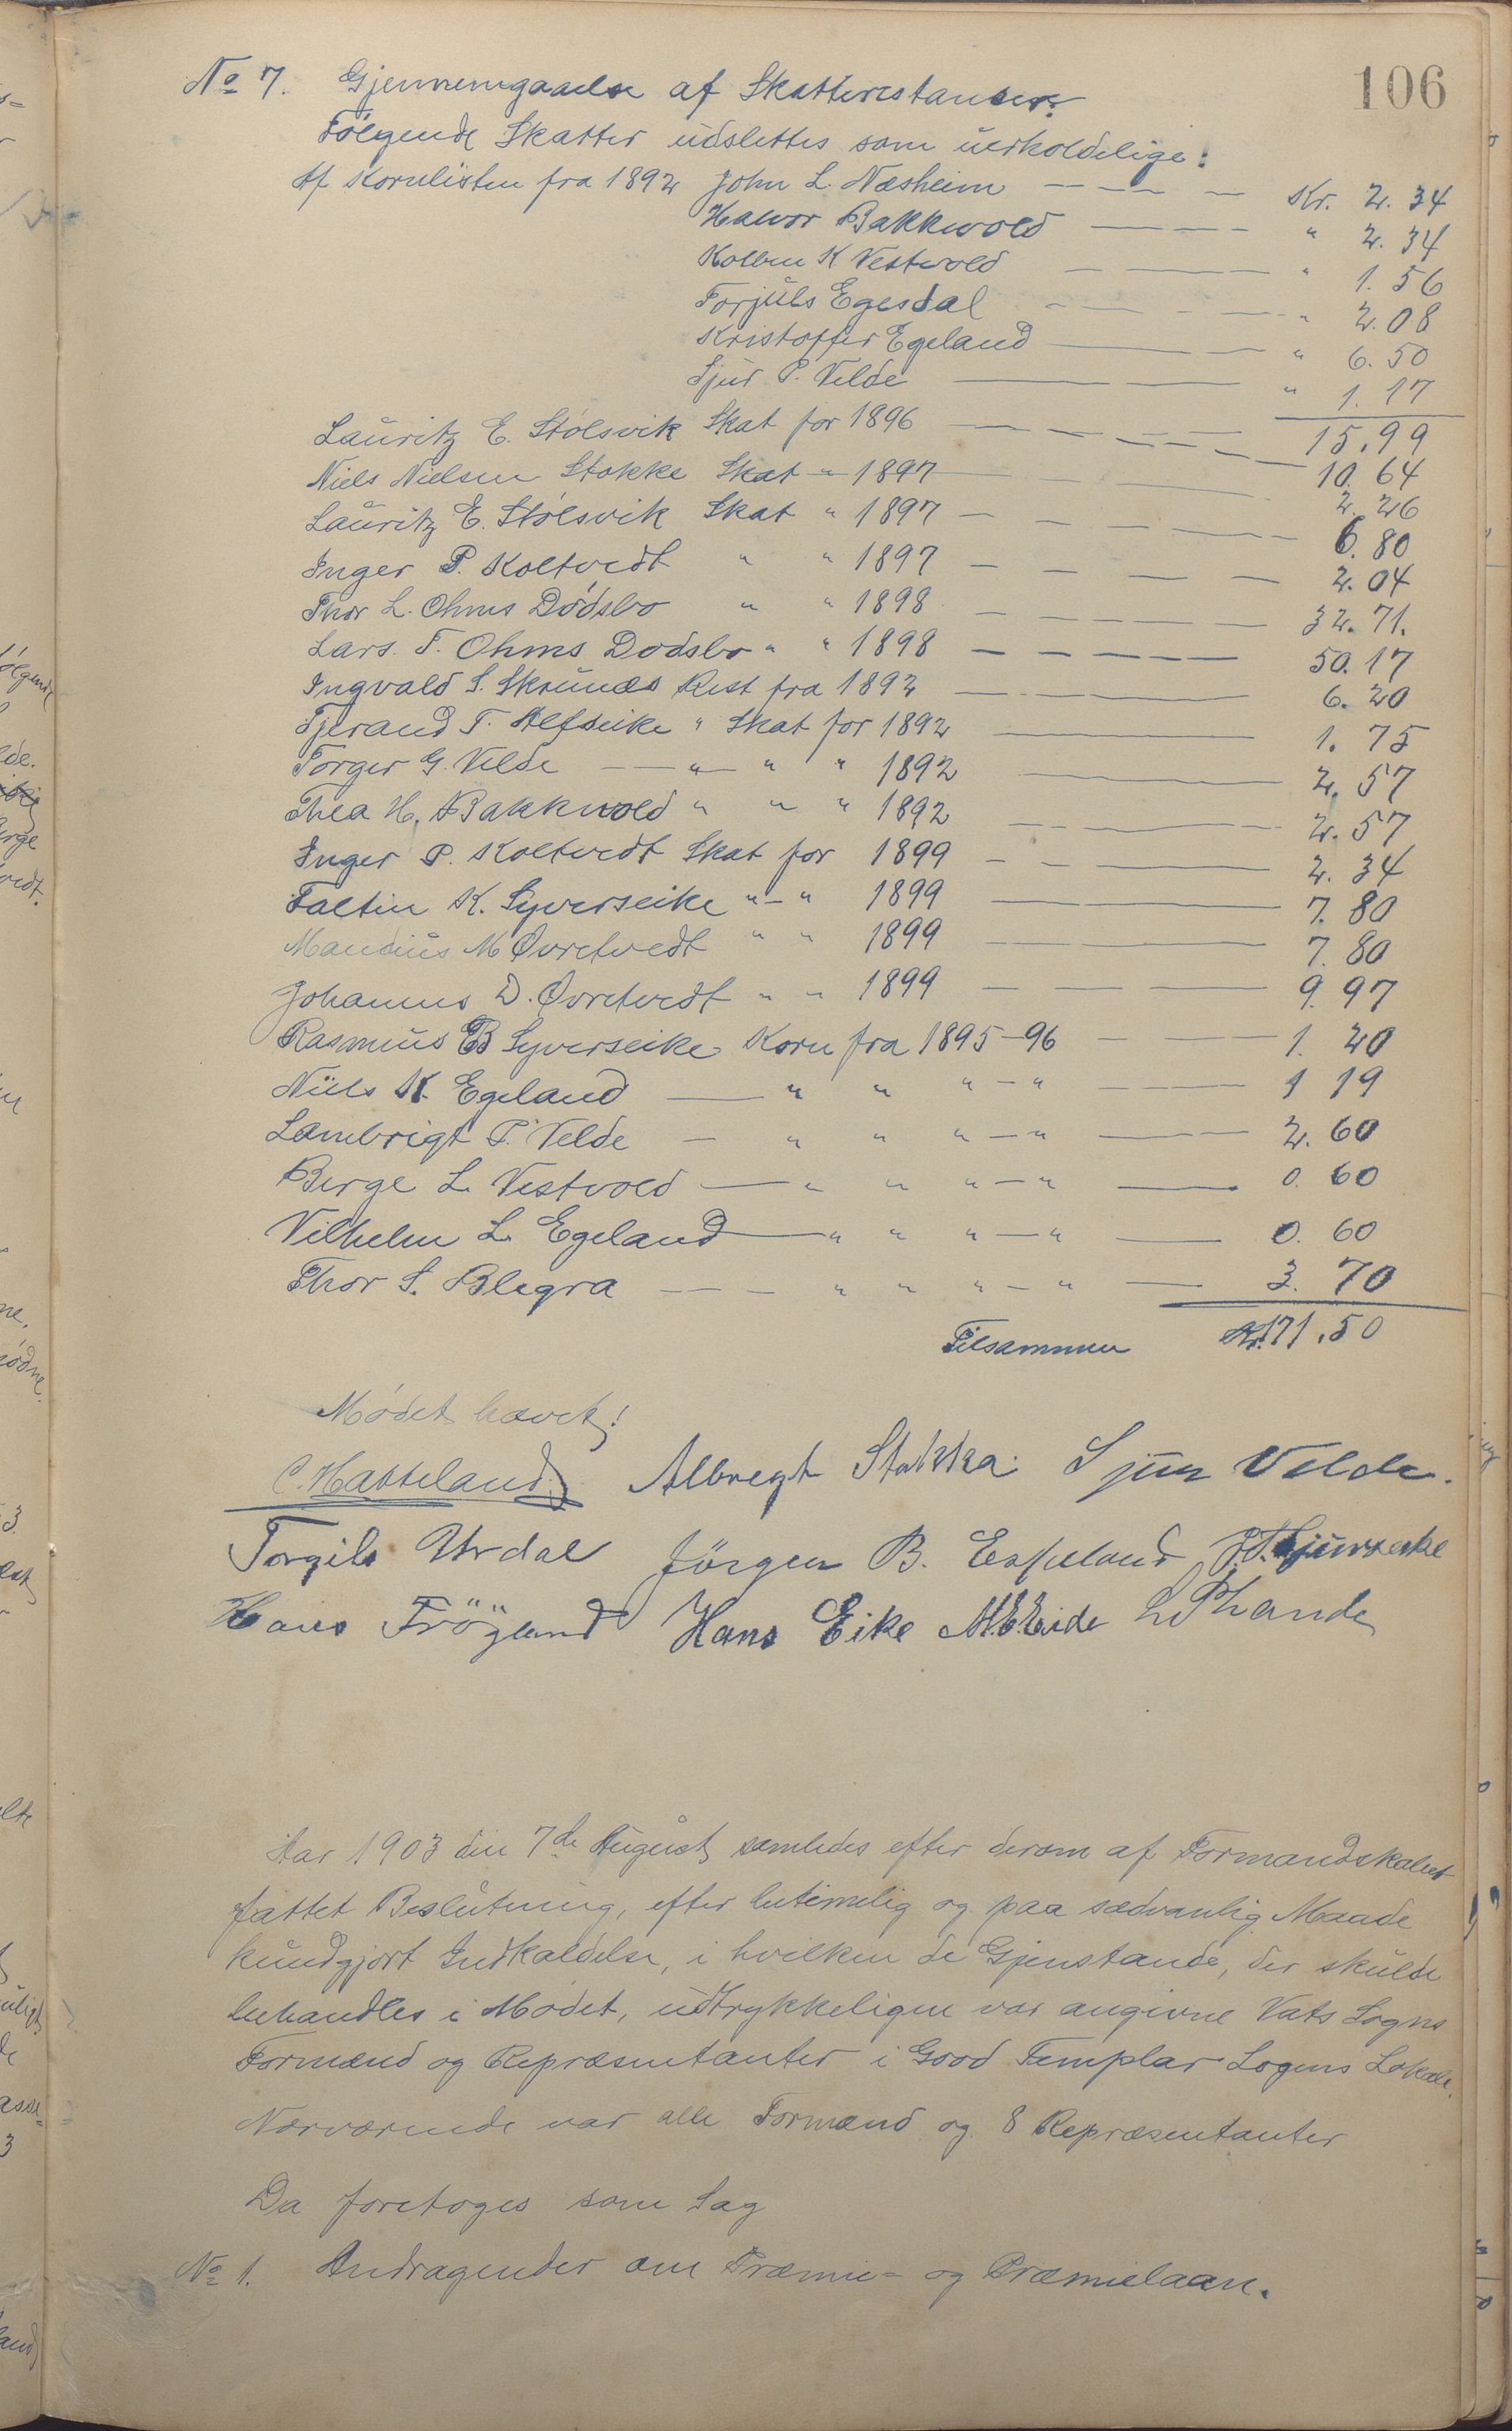 106
No 7. Gjennemgaaelse af Skatterestancer.
Følgende Skatter udslettes som uerholdelige:
Af Kornlisten fra 1892 John L. Næsheim — — — — Kr. 2. 34
Halvor Bakkevold — — — — " 2. 34
Kolben K Vestvold — — — " 1. 56
Torjuls Egesdal — — — — " 2. 08
Kristoffer Egeland — — — " 6. 50
Sjur P. Velde — — — " 1. 17
Lauritz E. Stølsvik Skat for 1896 — — — — 15.99
Niels Nielsen Stokke Skat " 1897 — — — — 10. 64
Lauritz E. Stølsvik Skat " 1897 — — — — 2. 26
Inger P. Koltvedt " " 1897 — — — — 6. 80
Thor L. Ohms Dødsbo " " 1898 — — — — 2. 04
Lars. T. Ohms Dødsbo " " 1898 — — — — 32. 71.
Ingvald S. Skrunæs Rest fra 1892 — — — 50. 17
Tjerand T. Alfseike " Skat for 1892 — — 6. 20
Torger G. Velde — " — " " 1892 — — 1. 75
Thea H. Bakkevold " " " 1892 — — 2. 57
Inger P. Koltvedt Skat for 1899 — — — 2. 57
Faltin K. Syverseike " — " 1899 — — 2. 34
Mandius M Øvretvedt " " 1899 — — — 7. 80
Johannes D. Øvretvedt " " 1899 — — — 7. 80
Rasmus B Syverseike Korn fra 1895—96 — — — 9. 97
Niels K. Egeland — " " " — " — — 1. 20
Lambrigt P. Velde — " " " — " — — 1 19
Berge L. Vestvold — " " " — " — 2. 60
Vilhelm L. Egeland — " " " — " — 0. 60
Thor S. Blegra — — — " " " — " — 0. 60
3. 70
Tilsammen Kr. 171.50
Mødet hævet!
C. Hatteland. Albregt Stakka. Sjur Velde.
Torgils Urdal Jörgen B. Espeland
Hans Fröyland Hans Eike
Aar 1903 den 7de August samledes efter derom af Formandskabet
fattet Beslutning, efter betimelig og paa sædvanlig Maade
kundgjort Indkaldelse, i hvilken de Gjenstande, der skulde
behandles i Mødet, udtrykkeligen var angivne Vats Sogns
Formænd og Repræsentanter i Good Templar Logens Lokale.
Nærværende var alle Formænd og 8 Repræsentanter
Da foretoges som Sag
No 1. Andragender om Præmie- og Præmielaan.